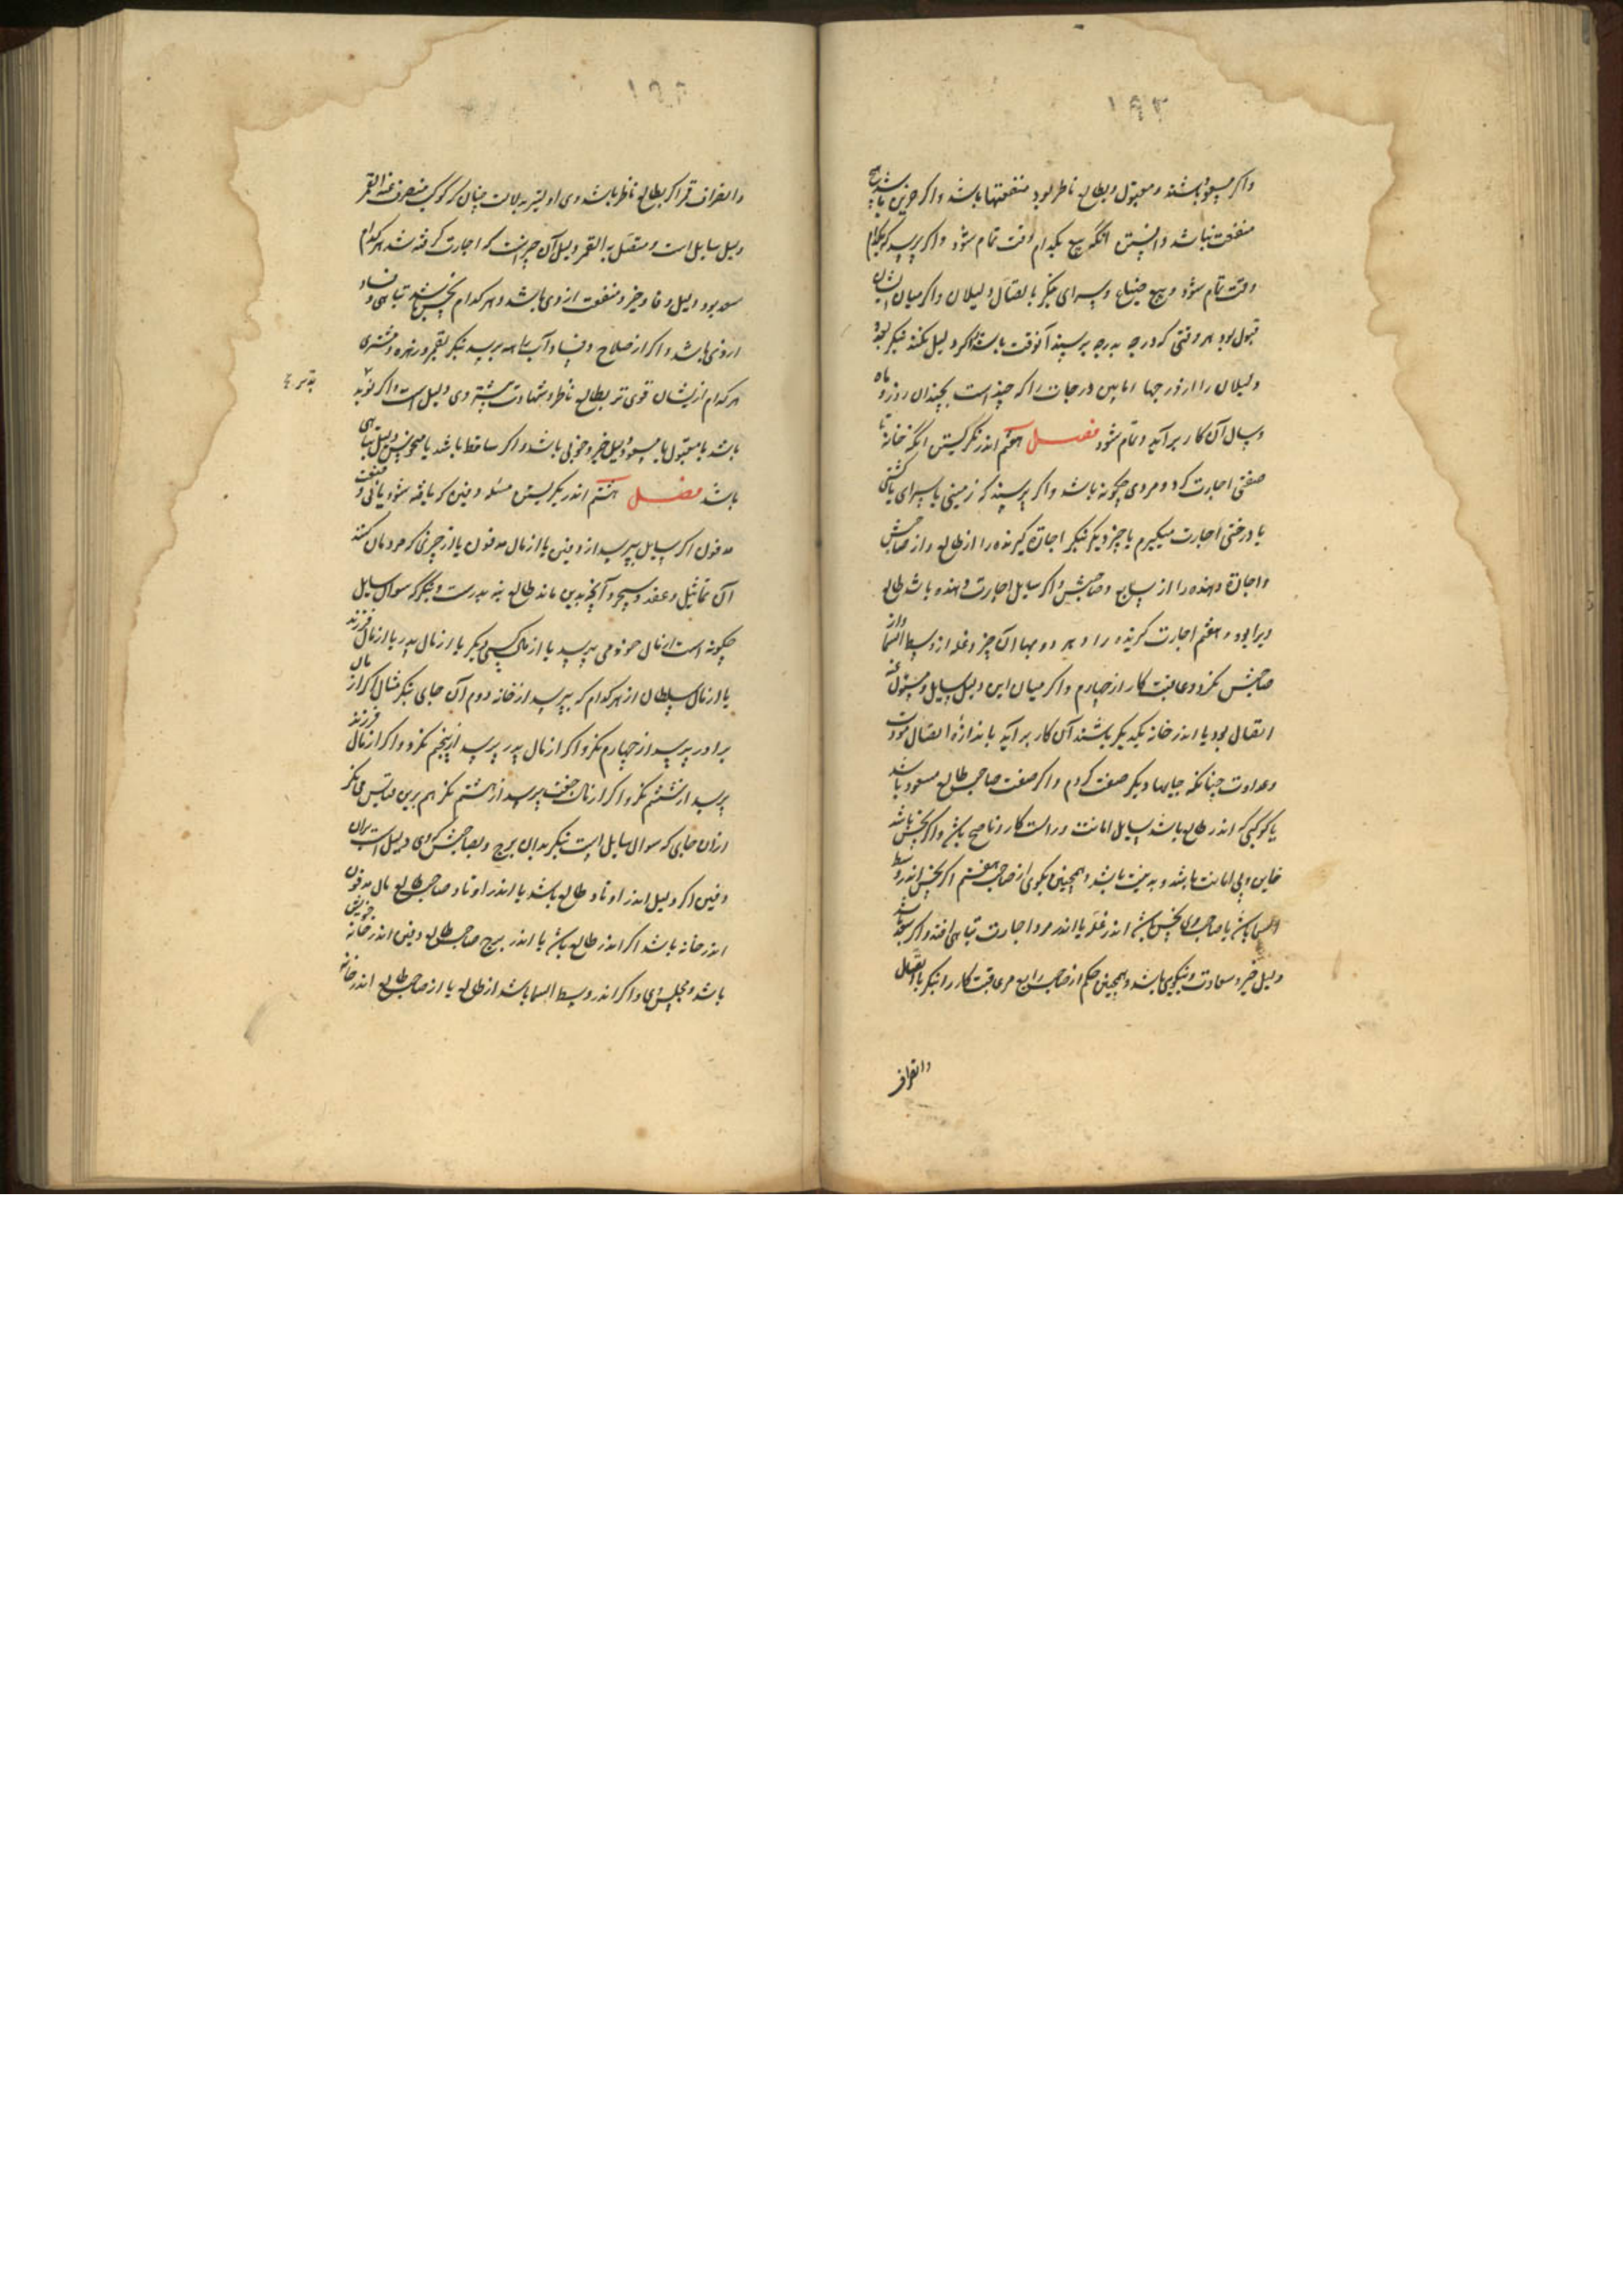 ۱۹۳
واکر مسعود باشند و مقبول و بطالع ناظر بود منفعتها باشد واکر جزین باشد هیچ
منفعت نباشد دانستن انکه بیع بکدام وقت تمام شود واکر پرسد که بکدام
وقت تمام شود و بیع ضیاع و سرای بنکر باتصال دلیلان واکر میان ایشان
قبول بود هر وقتی که درجه بدرجه برسند آنوقت باشد واکر دلیل نکند بنکر بعد
دلیلان را از درجها اما بین درجات را که چند است بچندان روز و ماه
و سال آن کار برآید و تمام شود فصل هفتم اندر نکریستن انکه خانه تا
صفتی اجارت کند و مردی چکونه باشد واکر پرسند که زمینی یا سرای یا کشتی
یا درختی اجارت میکیرم یا چیز دیکر بنکر اجازة کیرنده را از طالع و از صاحبش
واجازة دهنده را از سابع و صاحبش واکر سایل اجارت دهنده باشد طالع
ویرا بود و هفتم اجارت کیرنده را و بر دو بهاء آن چیز و غله از وسط السما و از
صاحبش نکرد و عاقبت کار از چهارم واکر میان این دلیل سایل و مسئول عنه
اتصال بود یا اندر خانه یکدیکر باشند آن کار برآید باندازهٔ اتصال مودت
وعداوت چنانکه جایها دیکر صفت کردم واکر صفت صاحب طالع مسعود باشد
یا کوکبی که اندر طالع باشد سایل امانت و راست کار و ناصح باشد واکر نحس باشد
خاین و بی امانت باشد و بدنیت باشد و همچنین بکوی از صاحب هفتم اکر نحس اندر وسط
السما باشد یا صاحب وی نحس باشد اندر غله یا اندر مرد اجارت تباهی افتد واکر سعد باشد
دلیل خیر و سعادت و نیکویی باشد و همچنین حکم از صاحب رابع مر عاقبت کار را بنکر باتصال
وانصراف
وانصراف قمر اکر بطالع ناظر باشد وی اولیتر بدلالت چنان کوکب منصرف عنه القمر
دلیل سایل است و متصل به القمر دلیل آن چیزاست که اجارت کرفته شد هر کدام
سعد بود دلیل وفا و خیر و منفعت از وی باشد و هر کدام نحس باشد تباهی و فساد
از وی باشد واکر از صلاح و فساد بپرسد بنکر بقمر و زهره و مشتری
هر کدام ازیشان قوی تر بطالع ناظر و شهادت بیشتر وی دلیل است واکر
باشد یا مقبول یا مسعود دلیل خیر و خوبی باشد واکر ساقط باشد یا منحوس دلیل تباهی
باشد فصل هشتم اندر نکریستن مسئله دفین که یافته شود یا نی و منفعت
مدفون اکر سایل بپرسد از دفین یا از مال مدفون یا از چیزی که مردمان کنند
آن تماثیل و عقد و سحر و آنچه بدین ماند طالع بنه بدرست و بنکر که سوال سایل
چکونه است از مال خود می پرسد یا از مال کسی دیکر یا از مال پدر یا از مال فرزند
یا از مال سلطان از هر کدام که بپرسد از خانه دوم آن جای بنکر مثال اکر از مال
برادر پرسد از چهارم نکرد واکر از مال پدر پرسد از پنجم نکرد واکر از مال فرزند
پرسد از ششم نکرد واکر از مال جفت پرسد از هشتم نکرد هم برین قیاس می نکر
از آن جای که سوال سایل است بنکر بدان برج و بصاحبش که وی دلیل است بران
دفین اکر دلیل اندر اوتاد طالع باشد یا اندر اوتاد صاحب طالع مال مدفون
اندر خانه باشد اکر اندر طالع باشد یا اندر برج صاحب طالع دفین اندر خانه خویش
باشد و مجلس وی واکر اندر وسط السما باشد از طالع یا از صاحب طالع اندر خانه